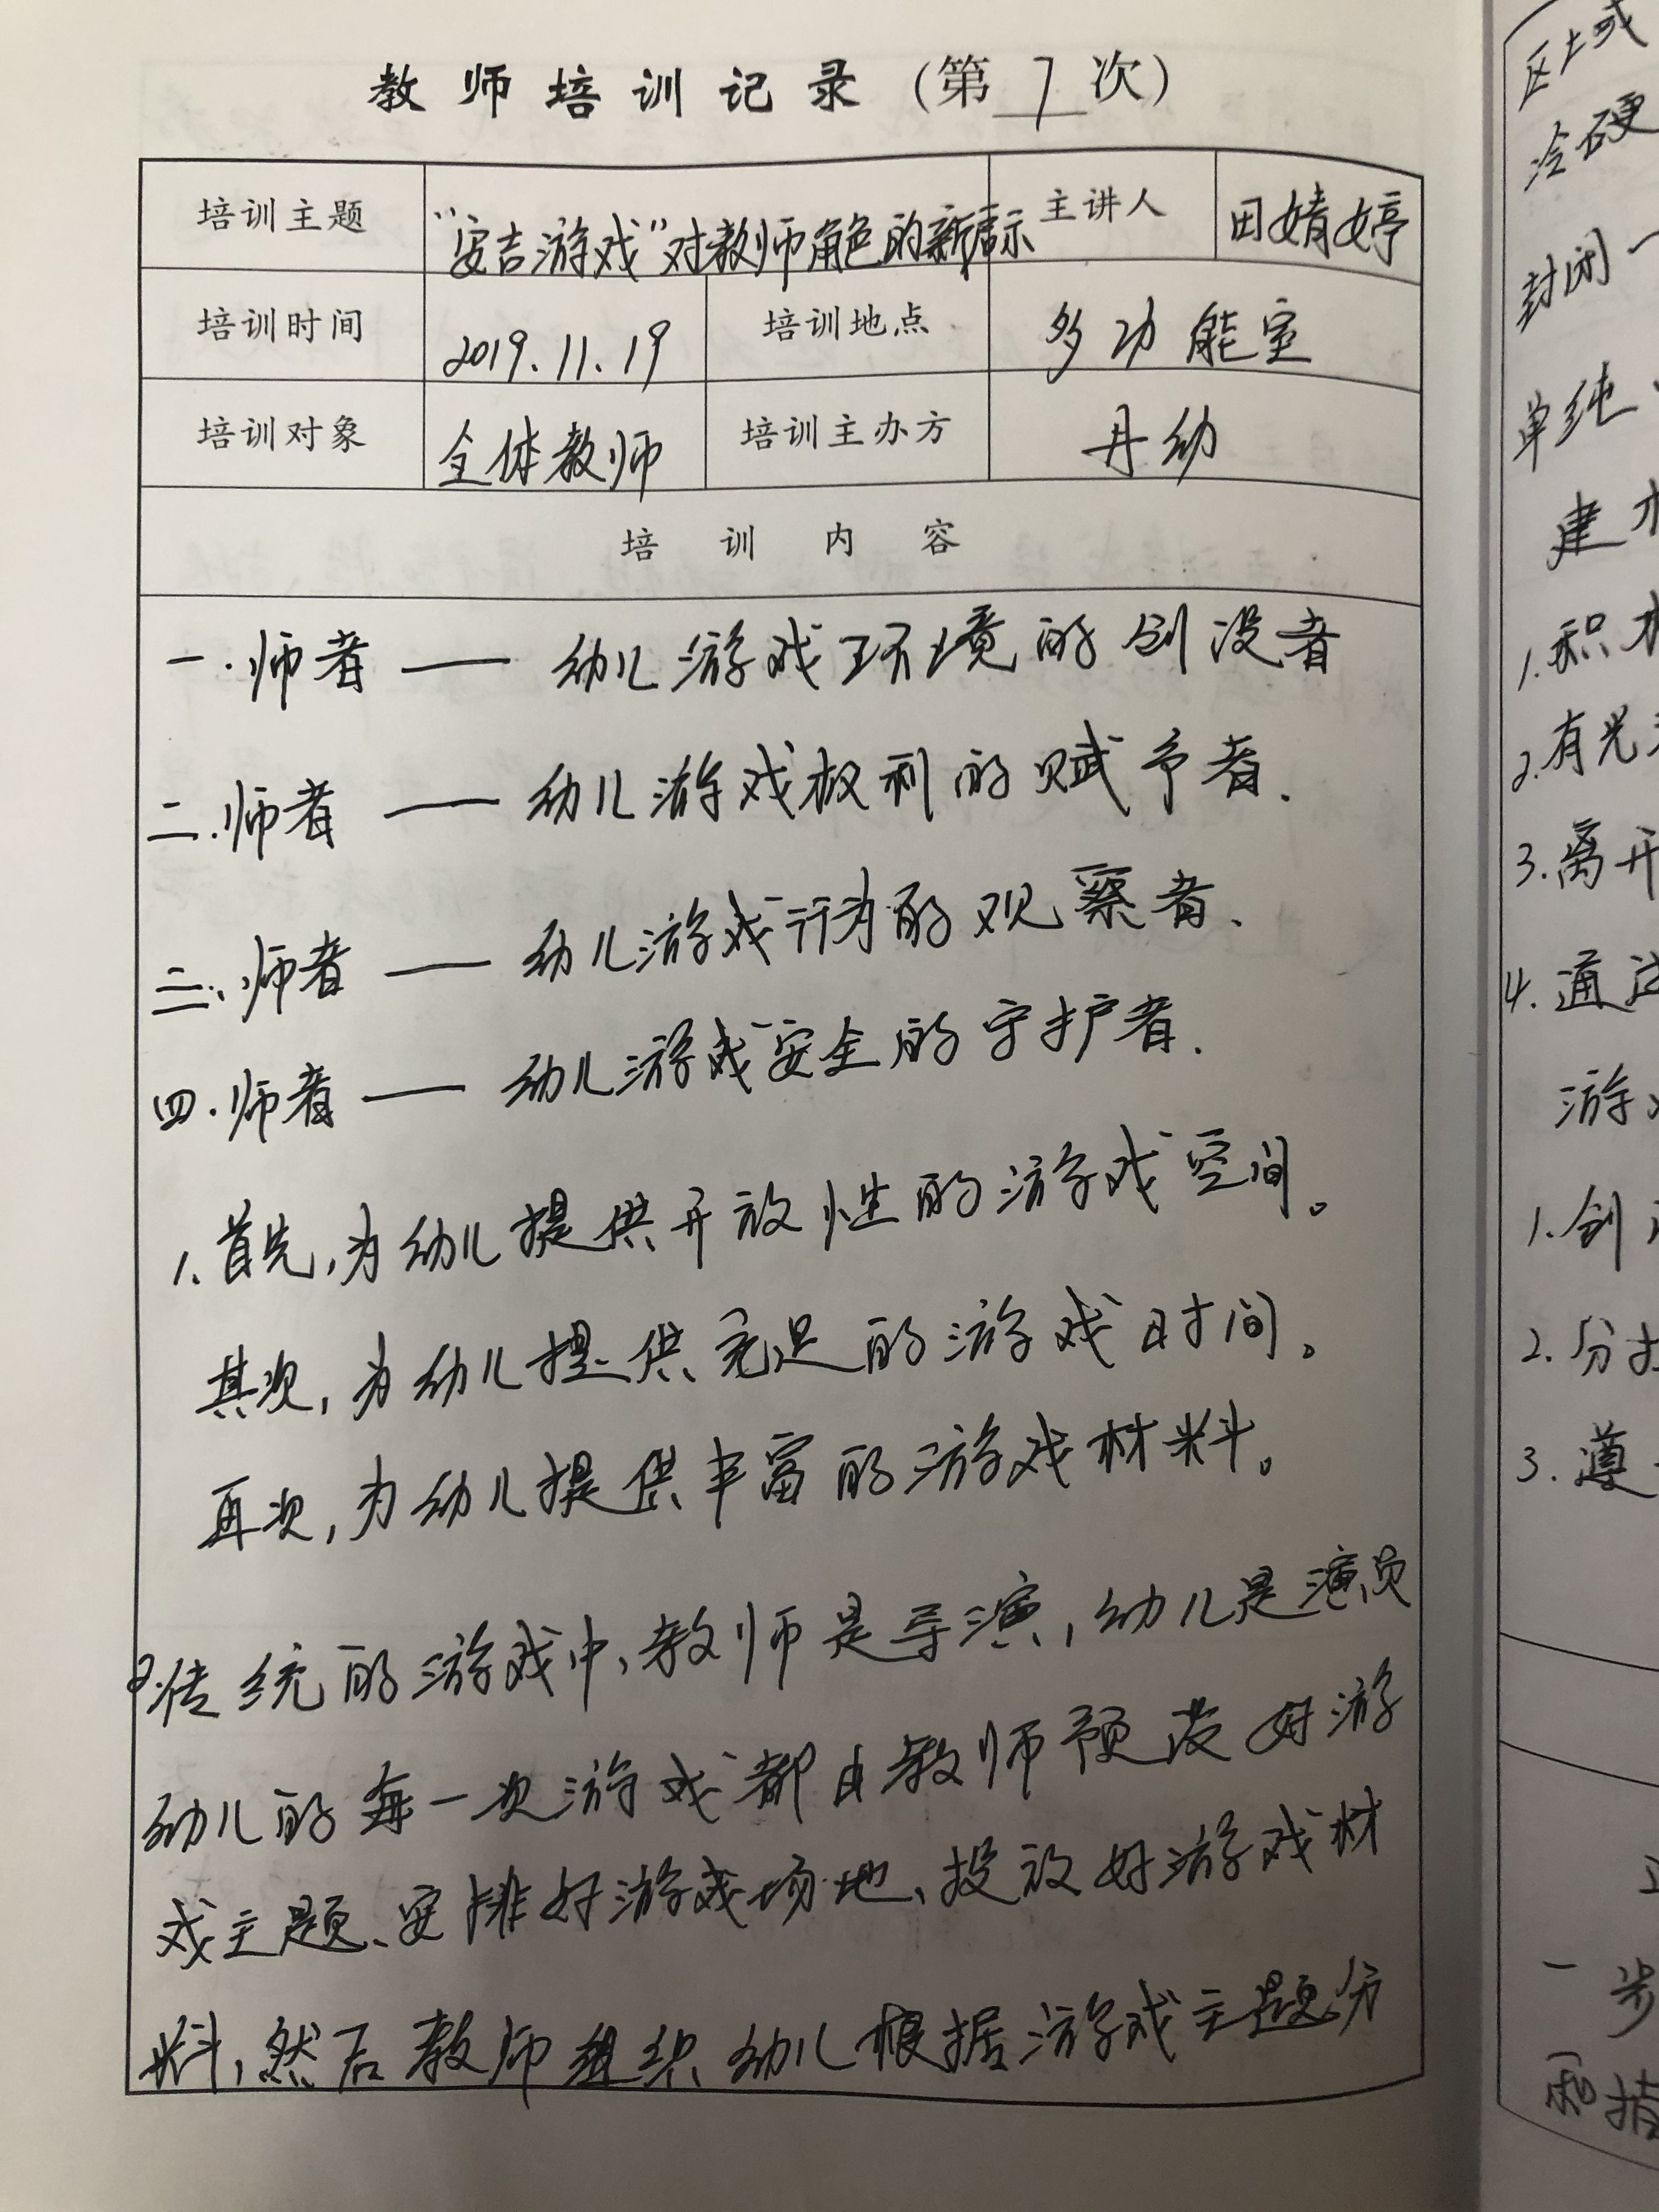 教师培训记录（第7次）
培训主题 “安吉游戏”对教师角色的新启示 主讲人 田婧婷
培训时间 2019.11.19 培训地点 多功能室
培训对象 全体教师 培训主办方 丹幼
培训内容
一.师者——幼儿游戏环境的创设者
二.师者——幼儿游戏权利的赋予者.
三、师者——幼儿游戏行为的观察者、
四.师者——幼儿游戏安全的守护者.
1.首先,为幼儿提供开放性的游戏空间。
其次,为幼儿提供充足的游戏时间。
再次,为幼儿提供丰富的游戏材料。
2.传统的游戏中,教师是导演,幼儿是演员
幼儿的每一次游戏都由教师预设好游
戏主题、安排好游戏场地、投放好游戏材
料,然后教师组织幼儿根据游戏主题分
区域
冷硬
封闭一
单纯
建
1.积木
2.有光
3.离开
4.通过
游戏
1.创
2.分
3.遵
一步
和指